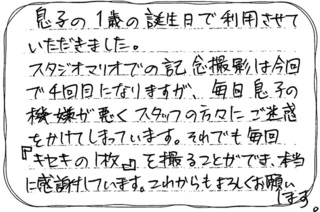 息子の1歳の誕生日で利用させて
いただきました。
スタジオマリオでの記念撮影は今回
で4回目になりますが、毎日息子の
機嫌が悪くスタッフの方々にご迷惑
をかけてしまっています。それでも毎回
『キセキの1枚』を撮ることができ、本当
に感謝しています。これからもよろしくお願い
します。